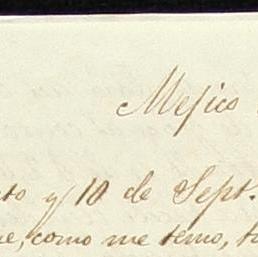 Mejico
to y 10 de Sept.
e, como me temo, tu